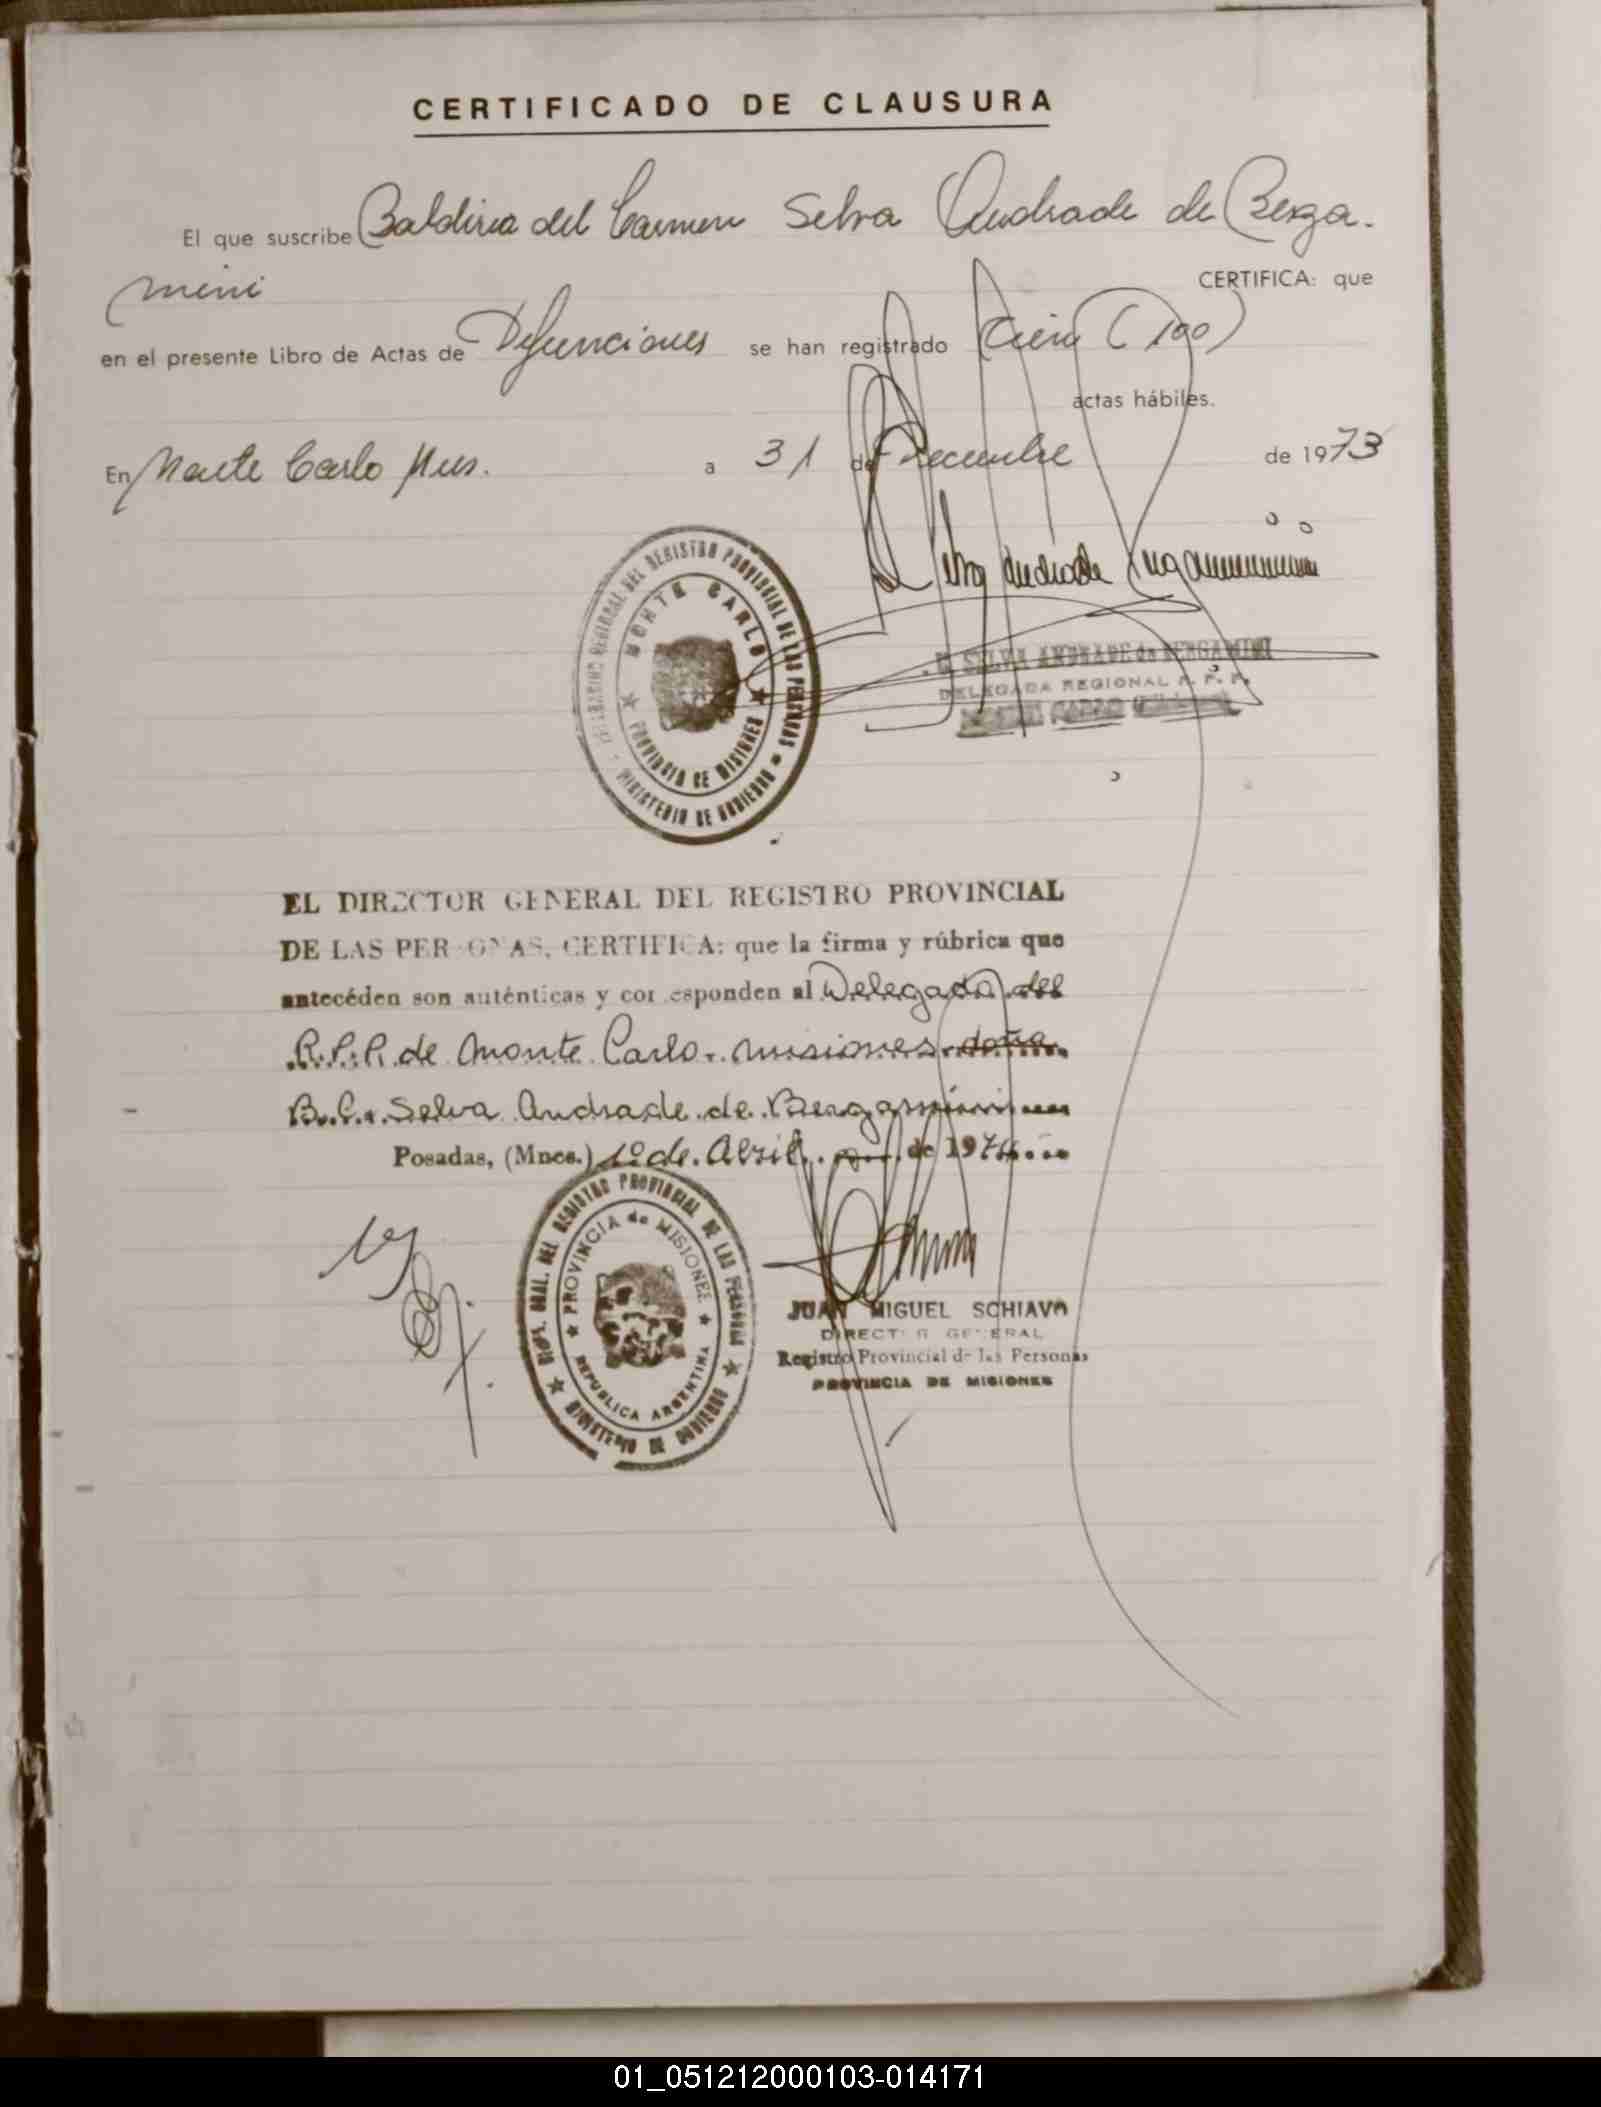 CERTIFICADO DE CLAUSURA
El que suscribe Baldiria del Carmen Selva Andrade de Berga-
mini CERTIFICA: que
en el presente Libro de Actas de Defunciones se han registrado Cien (100)
actas hábiles.
En Monte Carlo Mns. a 31 de Diciembre de 1973
DELEGACION REGIONAL DEL REGISTRO PROVINCIAL DE LAS PERSONAS
MINISTERIO DE GOBIERNO
MONTE CARLO
PROVINCIA DE MISIONES
Selva Andrade Bergamini
C. SELVA ANDRADE de BERGAMINI
DELEGADA REGIONAL R. P. P.
EL DIRECTOR GENERAL DEL REGISTRO PROVINCIAL
DE LAS PERSONAS, CERTIFICA: que la firma y rúbrica que
antecéden son auténticas y corresponden al Delegado del
R.P.P. de Monte Carlo - misiones - doña
B. C. Selva Andrade de Bergamini
Posadas, (Mnes.) 1º de Abril de 1974
DIRC. GRAL. DEL REGISTRO PROVINCIAL DE LAS PERSONAS
MINISTERIO DE GOBIERNO
PROVINCIA de MISIONES
REPUBLICA ARGENTINA
JUAN MIGUEL SCHIAVO
DIRECTOR GENERAL
Registro Provincial de las Personas
PROVINCIA DE MISIONES
01_051212000103-014171